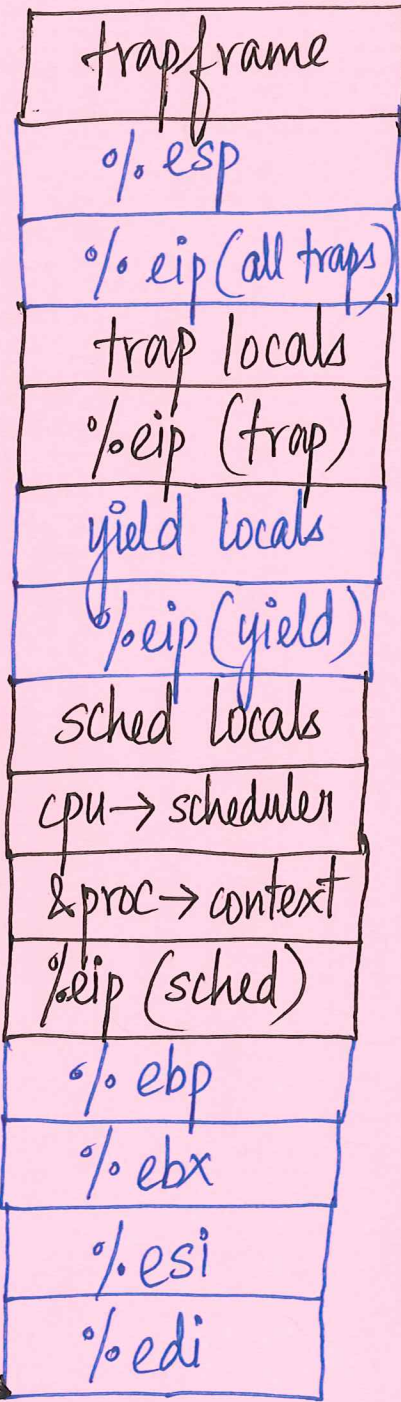 trapframe
% esp
% eip (all traps)
trap locals
% eip (trap)
yield locals
% eip (yield)
sched locals
cpu → scheduler
&proc → context
% eip (sched)
% ebp
% ebx
% esi
% edi